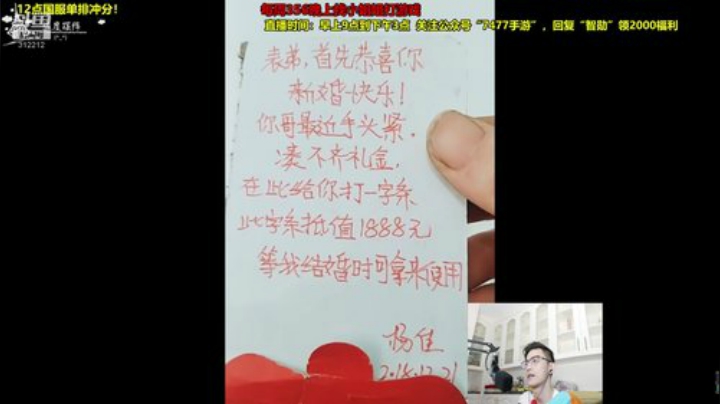 12点国服单排冲分！
每周356晚上找小姐姐打游戏
直播时间：早上9点到下午3点 关注公众号“7477手游”，回复“智勋”领2000福利
312212
表弟，首先恭喜你
新婚快乐！
你哥最近手头紧.
凑不齐礼金，
在此给你打一字条
此字条抵值1888元
等我结婚时可拿来使用
杨佳